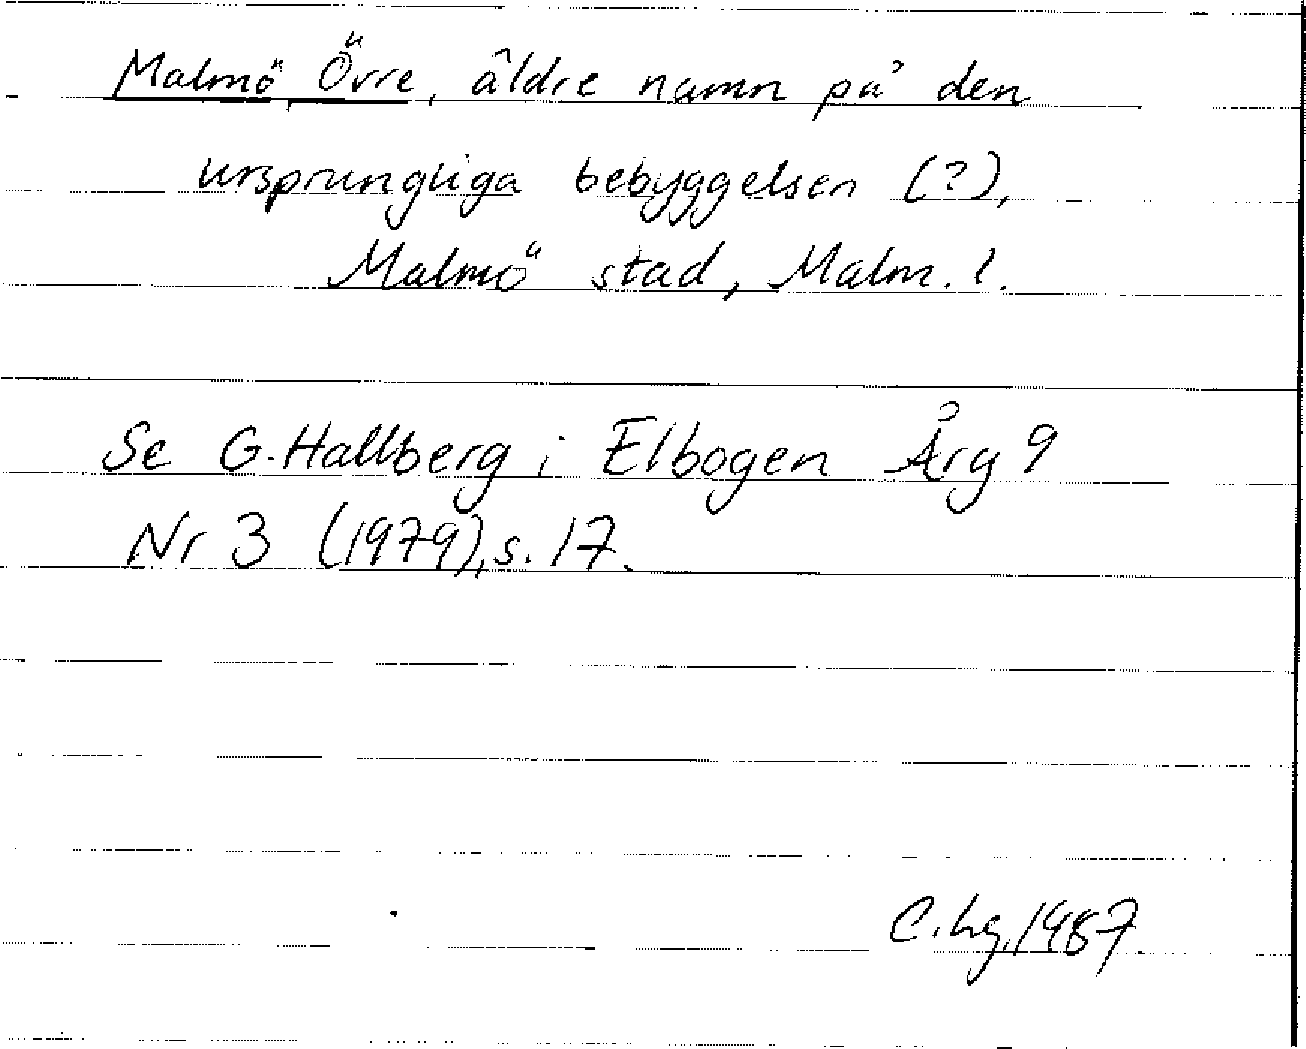 Malmö, Övre, äldre namn på den
ursprungliga bebyggelsen (?),
Malmö stad, Malm. l.
Se G. Hallberg i Elbogen Årg 9
Nr 3 (1979), s. 17.
C. Lg. 1987